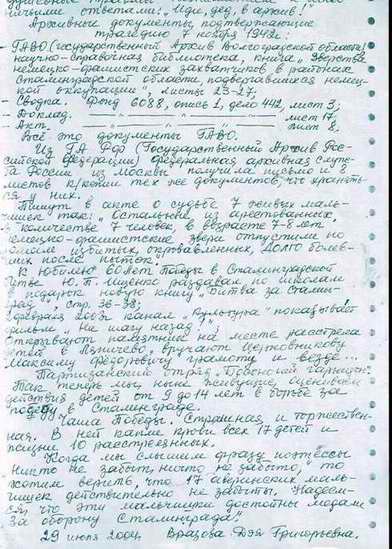 ничными ответами: "Иди, дед, в архив!"
Архивные документы, подтверждающие
трагедию 7 ноября 1942г:
ГАВО (государственный Архив Волгоградской области)
научно-справочная библиотека, книга "Зверства
немецко-фашистских захватчиков в районах
Сталинградской области, подвергавшихся немец-
кой оккупации", листы 23-27;
- Сводка. Фонд 6088, опись 1, дело 442, лист 3;
- Доклад. лист 17;
- Акт. лист 8;
Всё это документы ГАВО.
Из ГА РФ (Государственный Архив Рос-
сийской Федерации) федеральная архивная служ-
ба России из Москвы получила письмо и 8
листов к/копий тех же документов, что хранять-
ся у них.
Пишут в акте о судьбе 7 живых маль-
чишек так: "Остальные из арестованных,
в количестве 7 человек, в возрасте 7-8 лет
немецко-фашистские звери отпустили по
домам избитых, окровавленных, долго болев-
ших после пыток".
К юбилею 60 лет Победы в Сталинградской
битве Ю. П. Ищенко раздавал по школам
в подарок новую книгу "Битва за Сталин-
град", стр. 36-38;
февраля 2003г канал "Культура" показывает
фильм "Ни шагу назад";
открывают памятник на месте расстрела
детей в вручают Церковникову
Максиму Федоровичу грамоту и везде...
Партизанский отряд "Босоногий гарнизон".
Так теперь мы, ныне живущие, оцениваем
действия детей от 9 до 14 лет в борьбе за
победу в Сталинграде.
Чаша Победы. Страшная и торжествен-
ная. В ней капли крови всех 17 детей и
10 расстрелянных.
Когда мы слышим фразу поэтессы
"Никто не забыт, ничто не забыто", то
хотим верить, что 17 аверинских маль-
чишек действительно не забыты. Надеем-
ся, что эти мальчишки достойны медали
"За оборону Сталинграда".
29 июля 2004. Григорьевна.